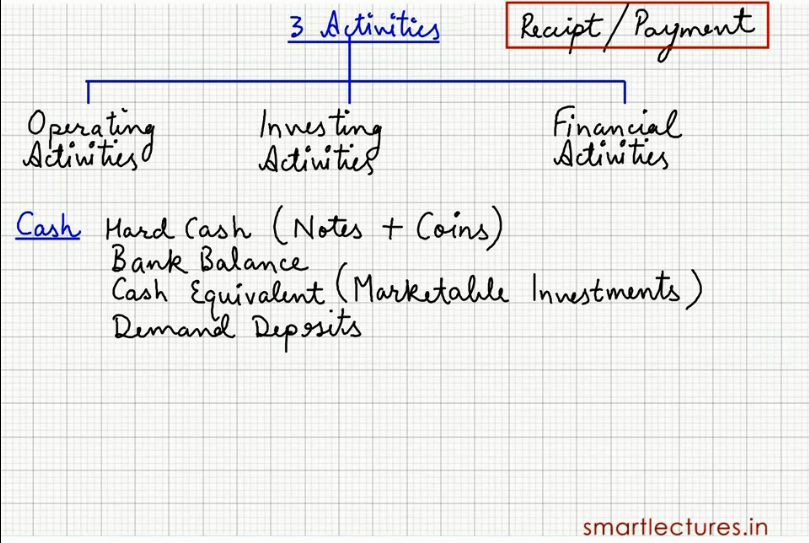 3 Activities
Receipt / Payment
Operating Activities
Investing Activities
Financial Activities
Cash Hard Cash (Notes + Coins)
Bank Balance
Cash Equivalent (Marketable Investments)
Demand Deposits
smartlectures.in